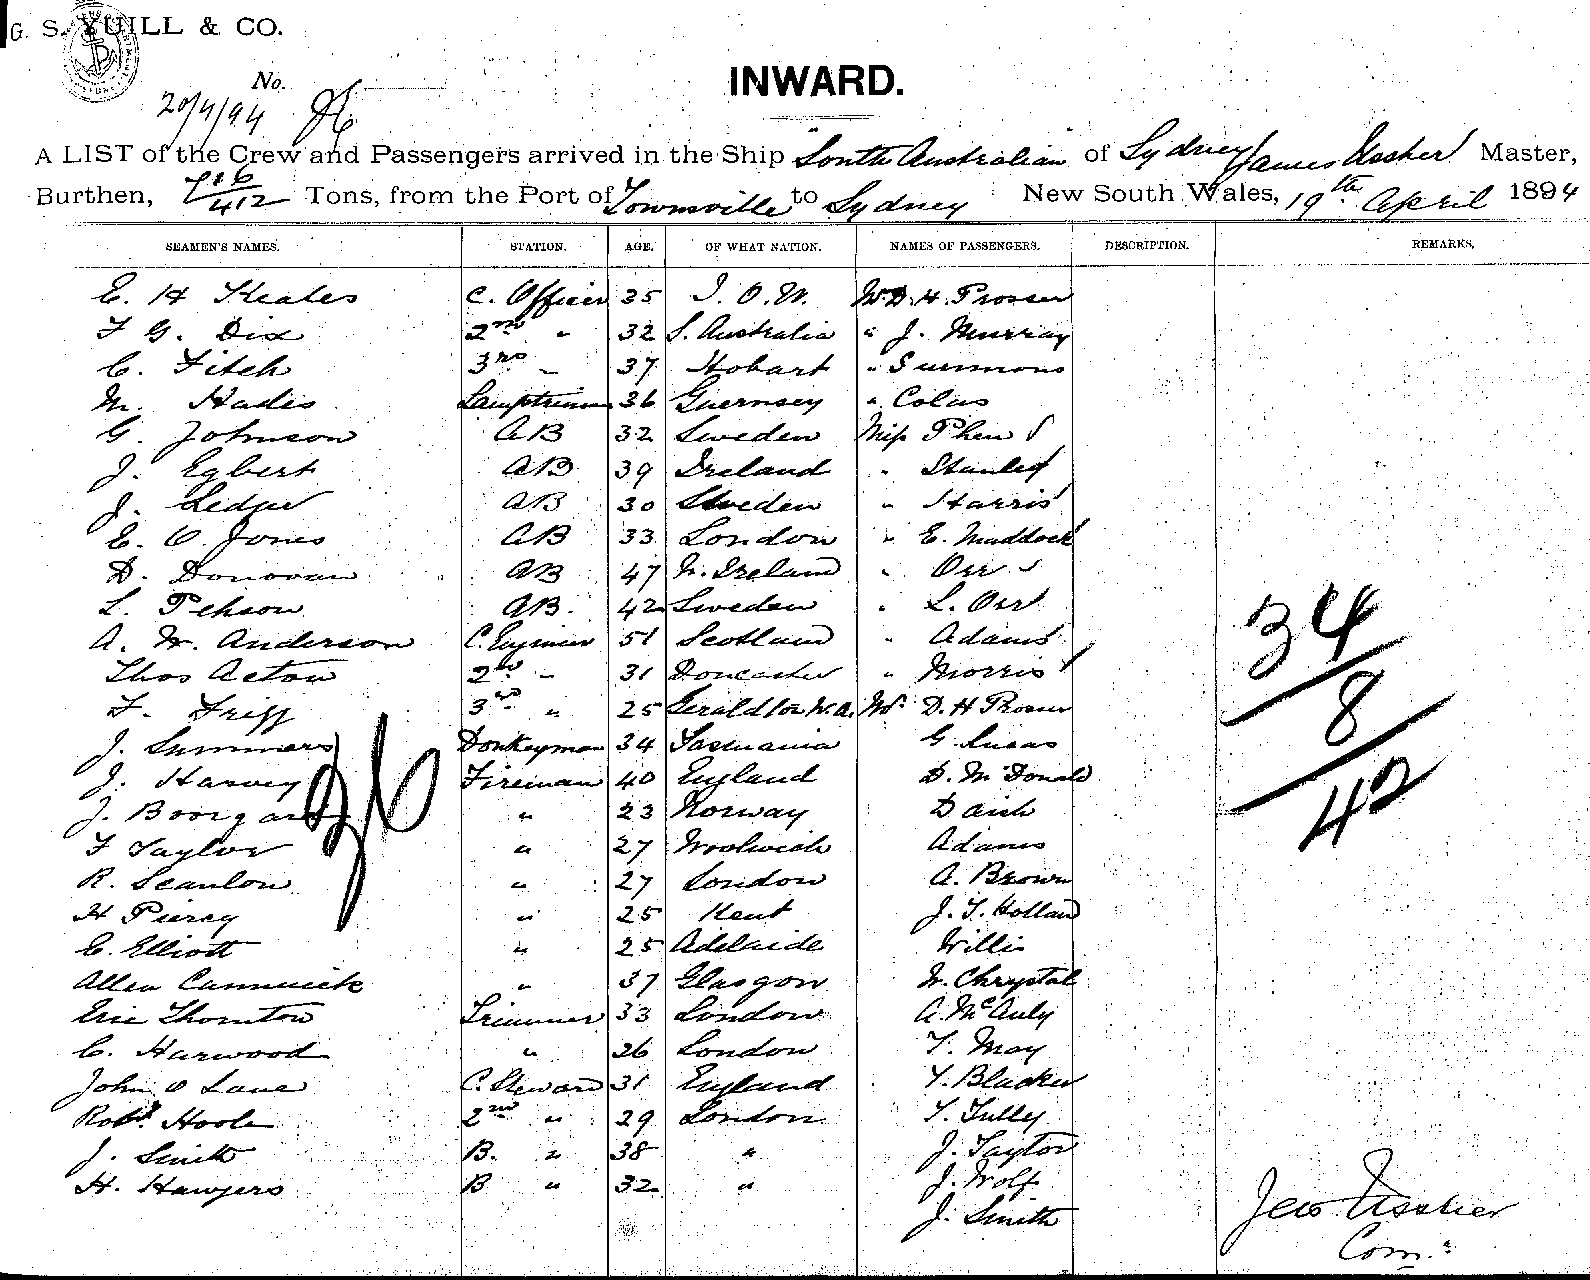 G. S. YUILL & CO.
No.
20/4/94
INWARD.
A LIST of the Crew and Passengers arrived in the Ship "South Australian" of Sydney James Ussher Master,
Burthen, 716/412 Tons, from the Port of Townsville to Sydney New South Wales, 19th April 1894
SEAMEN'S NAMES. STATION. AGE. OF WHAT NATION. NAMES OF PASSENGERS. DESCRIPTION. REMARKS.
E. H Keales C. Officer 35 I. O. W. Mr D. H. Prosser
F G. Dix 2nd " 32 S. Australia " J. Murray
C. Fitch 37 Hobart " Summons
M. Hades Lamptrimmer 36 Guernsey " Colas
G. Johnson AB 32 Sweden Miss
J. Egbert AB 39 Ireland " Stanley
J. AB 30 Sweden " Harris
E. O. Jones AB 33 London " E. Maddock
D. Donovan AB 47 N. Ireland " Orr
L. Pehson AB. 42 Sweden " L. Orr
A. W. Anderson C. Engineer 51 Scotland " Adams
Thos Acton 2nd " 31 Doncaster " Morris
F. 3rd " 25 Geraldton W.A. Mr. D. H Prosser
J. Summers Donkeyman 34 Tasmania G. Lucas
J. Harvey Fireman 40 England D. McDonald
J. " 23 Norway Daish
F Taylor " 27 Woolwich Adams
R. Scanlon " 27 London A. Brown
H Piercy " 25 Kent J. T. Holland
C. Elliott " 25 Adelaide Willis
Allen Cammick " 37 Glasgow W. Chrystal
Eric Thornton Trimmer 33 London A. McAuly
C. Harwood " 26 London T. May
John O Lane C. Steward 31 England T. Blacker
Robt. Hoole 2nd " 29 London T. Tully
J. Smith B. " 38 " J. Taylor
H. Hawyers B " 32 " J. Wolf
J. Smith
34
8
42
Jas Ussher
Com.